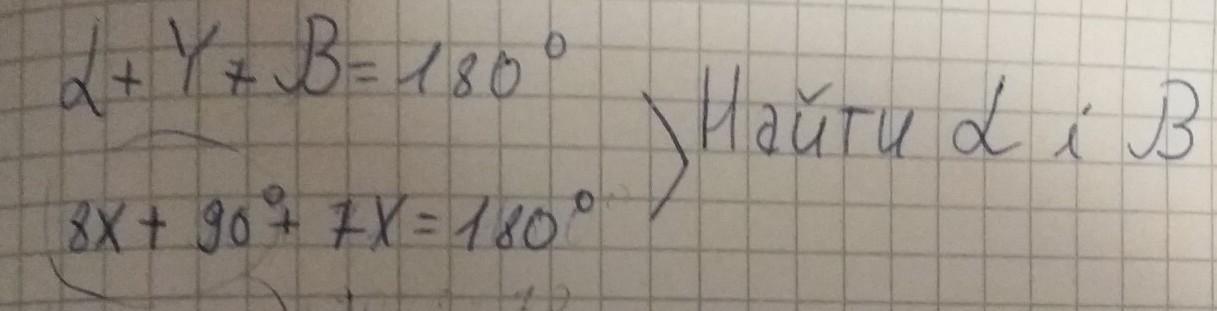 α + γ + β = 180°
8x + 90° + 7x = 180°
Найти α i β